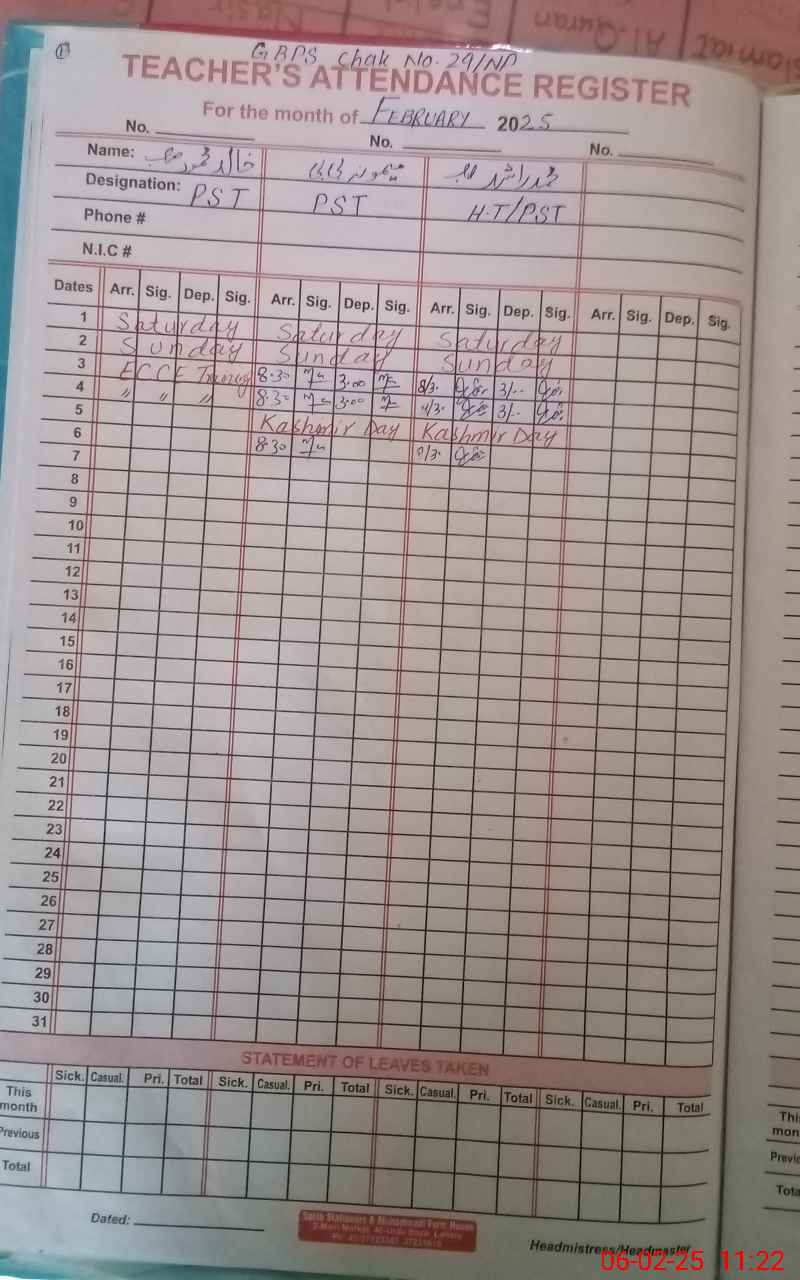 Islamiat Al-Quran English Nasir
①
GBPS Chak No. 29/NP
TEACHER'S ATTENDANCE REGISTER
For the month of FEBRUARY 2025
No. No. No.
Name: خالد محمود صاحب میمونہ بی بی محمد راشد صاحب
Designation: PST PST H.T/PST
Phone #
N.I.C #
Dates Arr. Sig. Dep. Sig. Arr. Sig. Dep. Sig. Arr. Sig. Dep. Sig. Arr. Sig. Dep. Sig.
1 Saturday Saturday Saturday
2 Sunday Sunday Sunday
3 ECCE Training 8.30 3.00 8/3. 3/..
4 " " " 8.30 3.00 3/..
5 Kashmir Day Kashmir Day
6 8.30
7
8
9
10
11
12
13
14
15
16
17
18
19
20
21
22
23
24
25
26
27
28
29
30
31
STATEMENT OF LEAVES TAKEN
Sick. Casual. Pri. Total Sick. Casual. Pri. Total Sick. Casual. Pri. Total Sick. Casual. Pri. Total
This month
Previous
Total
Dated:
Headmistress/Headmaster
06-02-25 11:22